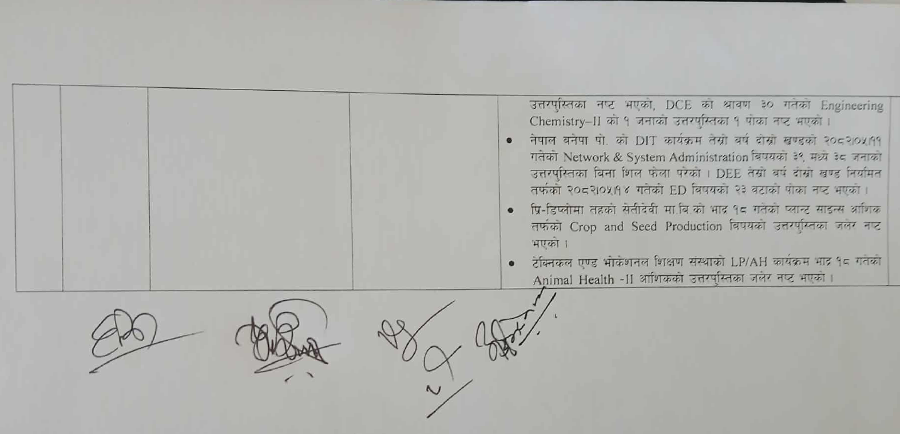 उत्तरपुस्तिका नष्ट भएको, DCE को श्रावण ३० गतेको Engineering
Chemistry–II को १ जनाको उत्तरपुस्तिका १ पोका नष्ट भएको ।
• नेपाल बनेपा पो. को DIT कार्यक्रम तेस्रो बर्ष दोस्रो खण्डको २०८२।०५।११
गतेको Network & System Administration बिषयको ३९ मध्ये ३८ जनाको
उत्तरपुस्तिका बिना शिल फेला परेको । DEE तेस्रो बर्ष दोस्रो खण्ड नियमित
तर्फको २०८२।०५।१४ गतेको ED बिषयको २३ वटाको पोका नष्ट भएको ।
• प्रि-डिप्लोमा तहको सेतीदेवी मा बि को भाद्र १८ गतेको प्लान्ट साइन्स आंशिक
तर्फको Crop and Seed Production बिषयको उत्तरपुस्तिका जलेर नष्ट
भएको ।
• टेक्निकल एण्ड भोकेशनल शिक्षण संस्थाको LP/AH कार्यक्रम भाद्र १८ गतेको
Animal Health -II आंशिकको उत्तरपुस्तिका जलेर नष्ट भएको ।